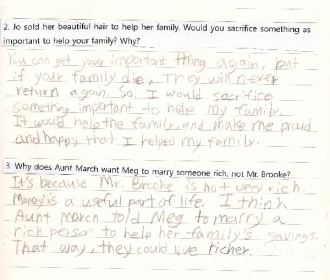 2. Jo sold her beautiful hair to help her family. Would you sacrifice something as
important to help your family? Why?
You can get your important thing again, but
if your family die, they will never
return again. So, I would sacrifice
someting important to help my family.
It would help the family, and make me proud
and happy that I helped my family.
3. Why does Aunt March want Meg to marry someone rich, not Mr. Brooke?
It's because Mr. Brooke is not very rich.
Money is a useful part of life. I think
Aunt March told Meg to marry a
rich person to help her family's savings.
That way, they could live richer.